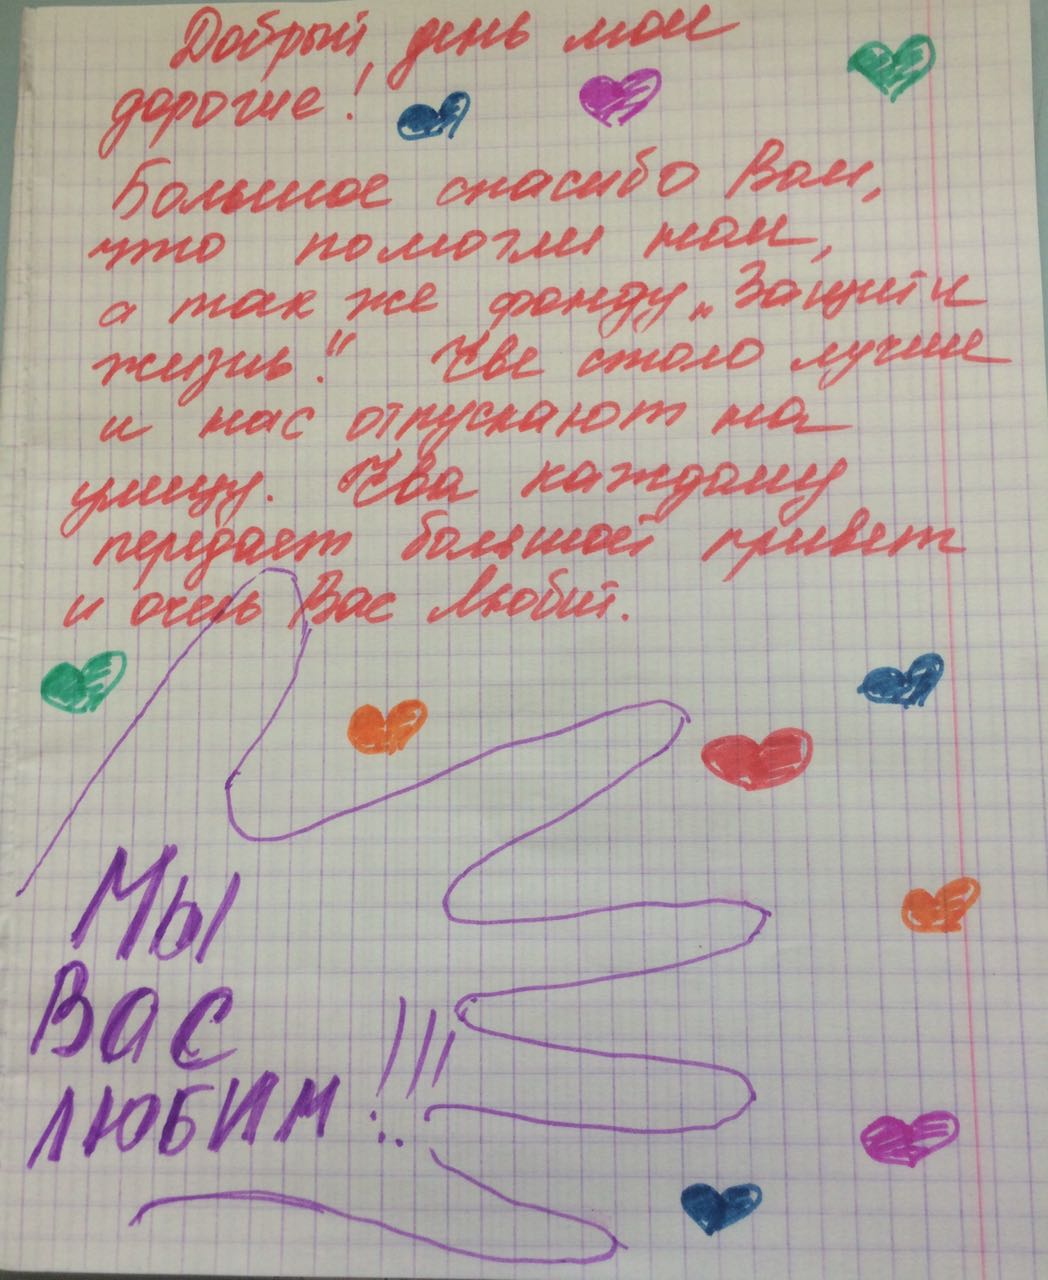 Добрый день мои
дорогие!
Большое спасибо Вам,
что помогли нам,
а так же фонду „Защити
жизнь!“ Еве стало лучше
и нас отпускают на
улицу. Ева каждому
передает большой привет
и очень Вас любит.
Мы
Вас
любим!!!